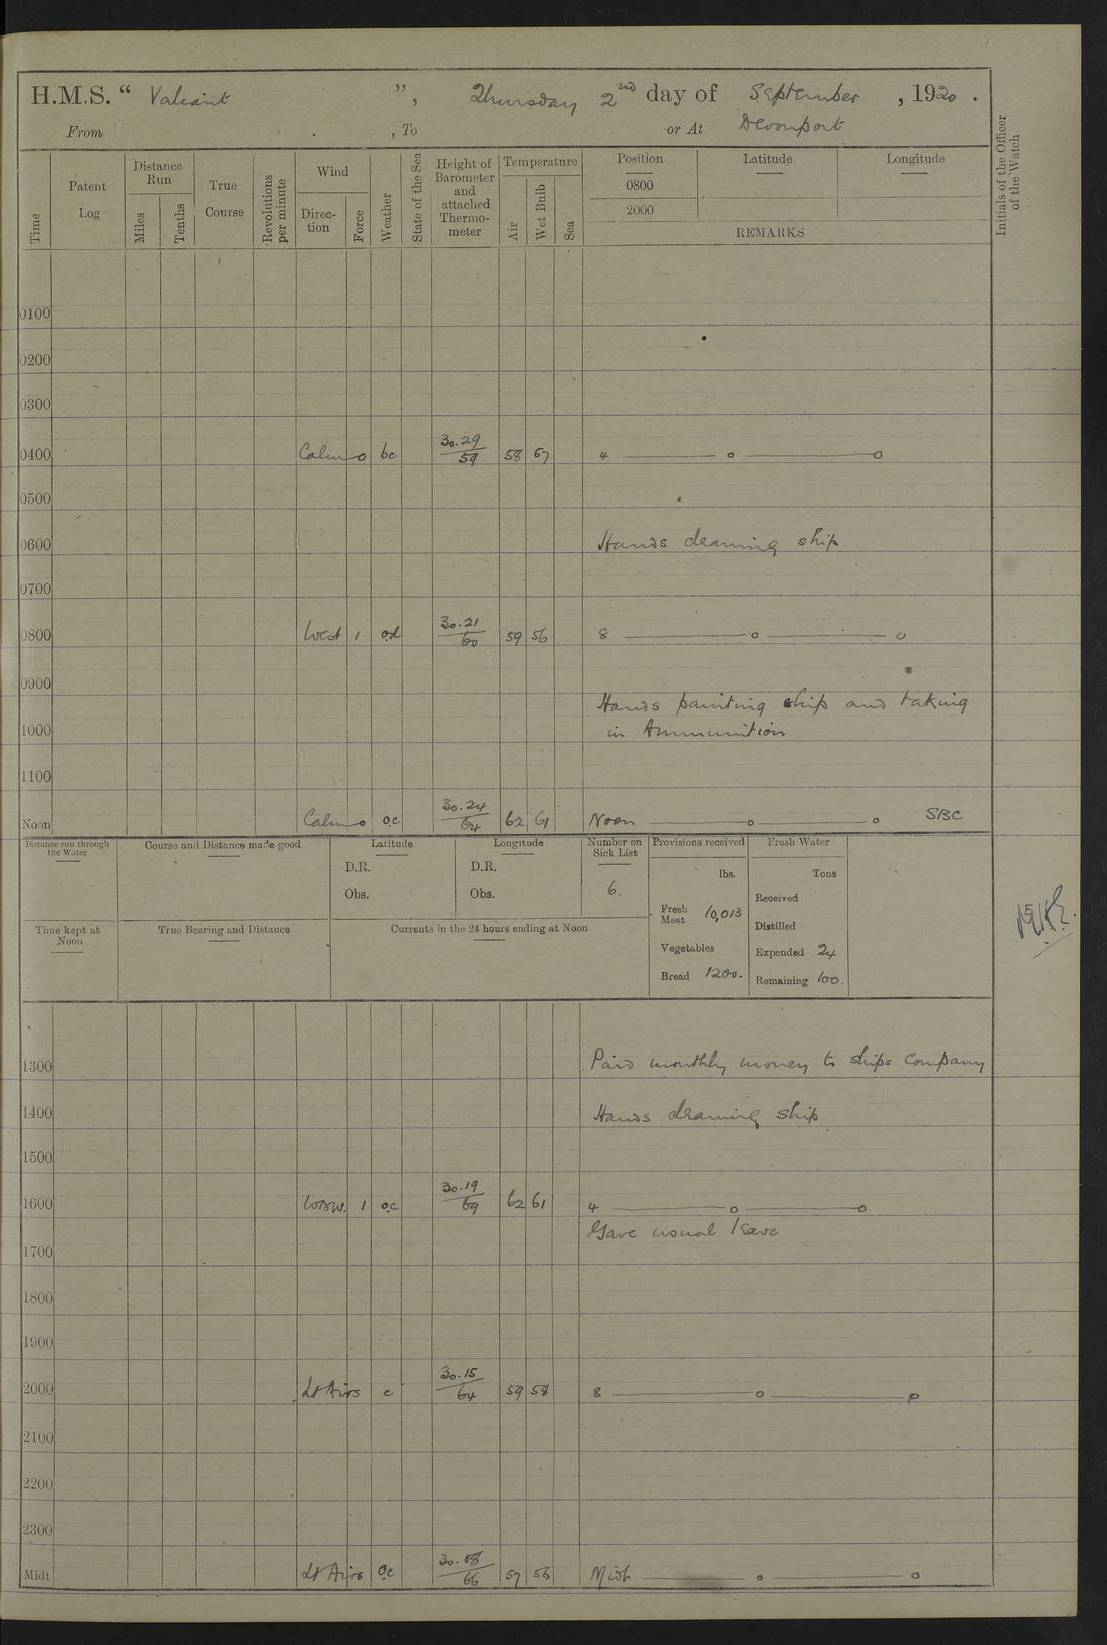 H.M.S. “ Valiant ”, Thursday 2nd day of September , 1920 .
From , To or At Devonport
Time
Patent Log
Distance Run
Miles
Tenths
True Course
Revolutions per minute
Wind
Direc-tion
Force
Weather
State of the Sea
Height of Barometer and attached Thermo-meter
Temperature
Air
Wet Bulb
Sea
Position
0800
2000
Latitude
Longitude
REMARKS
Initials of the Officer of the Watch
0100
0200
0300
0400 Calm 0 bc 30.29/59 58 57 4 — o — o
0500
0600 Hands cleaning ship
0700
0800 West 1 od 30.21/60 59 56 8 — o — o
0900
Hands painting ship and taking
1000 in Ammunition
1100
Noon Calm 0 oc 30.24/64 62 61 Noon — o — o SBC
Distance run through the Water
Course and Distance made good
Latitude
D.R.
Obs.
Longitude
D.R.
Obs.
Number on Sick List
6.
Provisions received
lbs.
Fresh Meat 10,013
Vegetables
Bread 1200.
Fresh Water
Tons
Received
Distilled
Expended 24
Remaining 100.
Time kept at Noon
True Bearing and Distance
Currents in the 24 hours ending at Noon
1300 Paid monthly money to ships Company
1400 Hands cleaning ship
1500
1600 WSW. 1 oc 30.19/69 62 61 4 — o — o
Gave usual leave
1700
1800
1900
2000 Lt Airs c 30.15/64 59 58 8 — o — o
2100
2200
2300
Midt Lt Airs oc 30.08/66 57 56 Midt — o — o